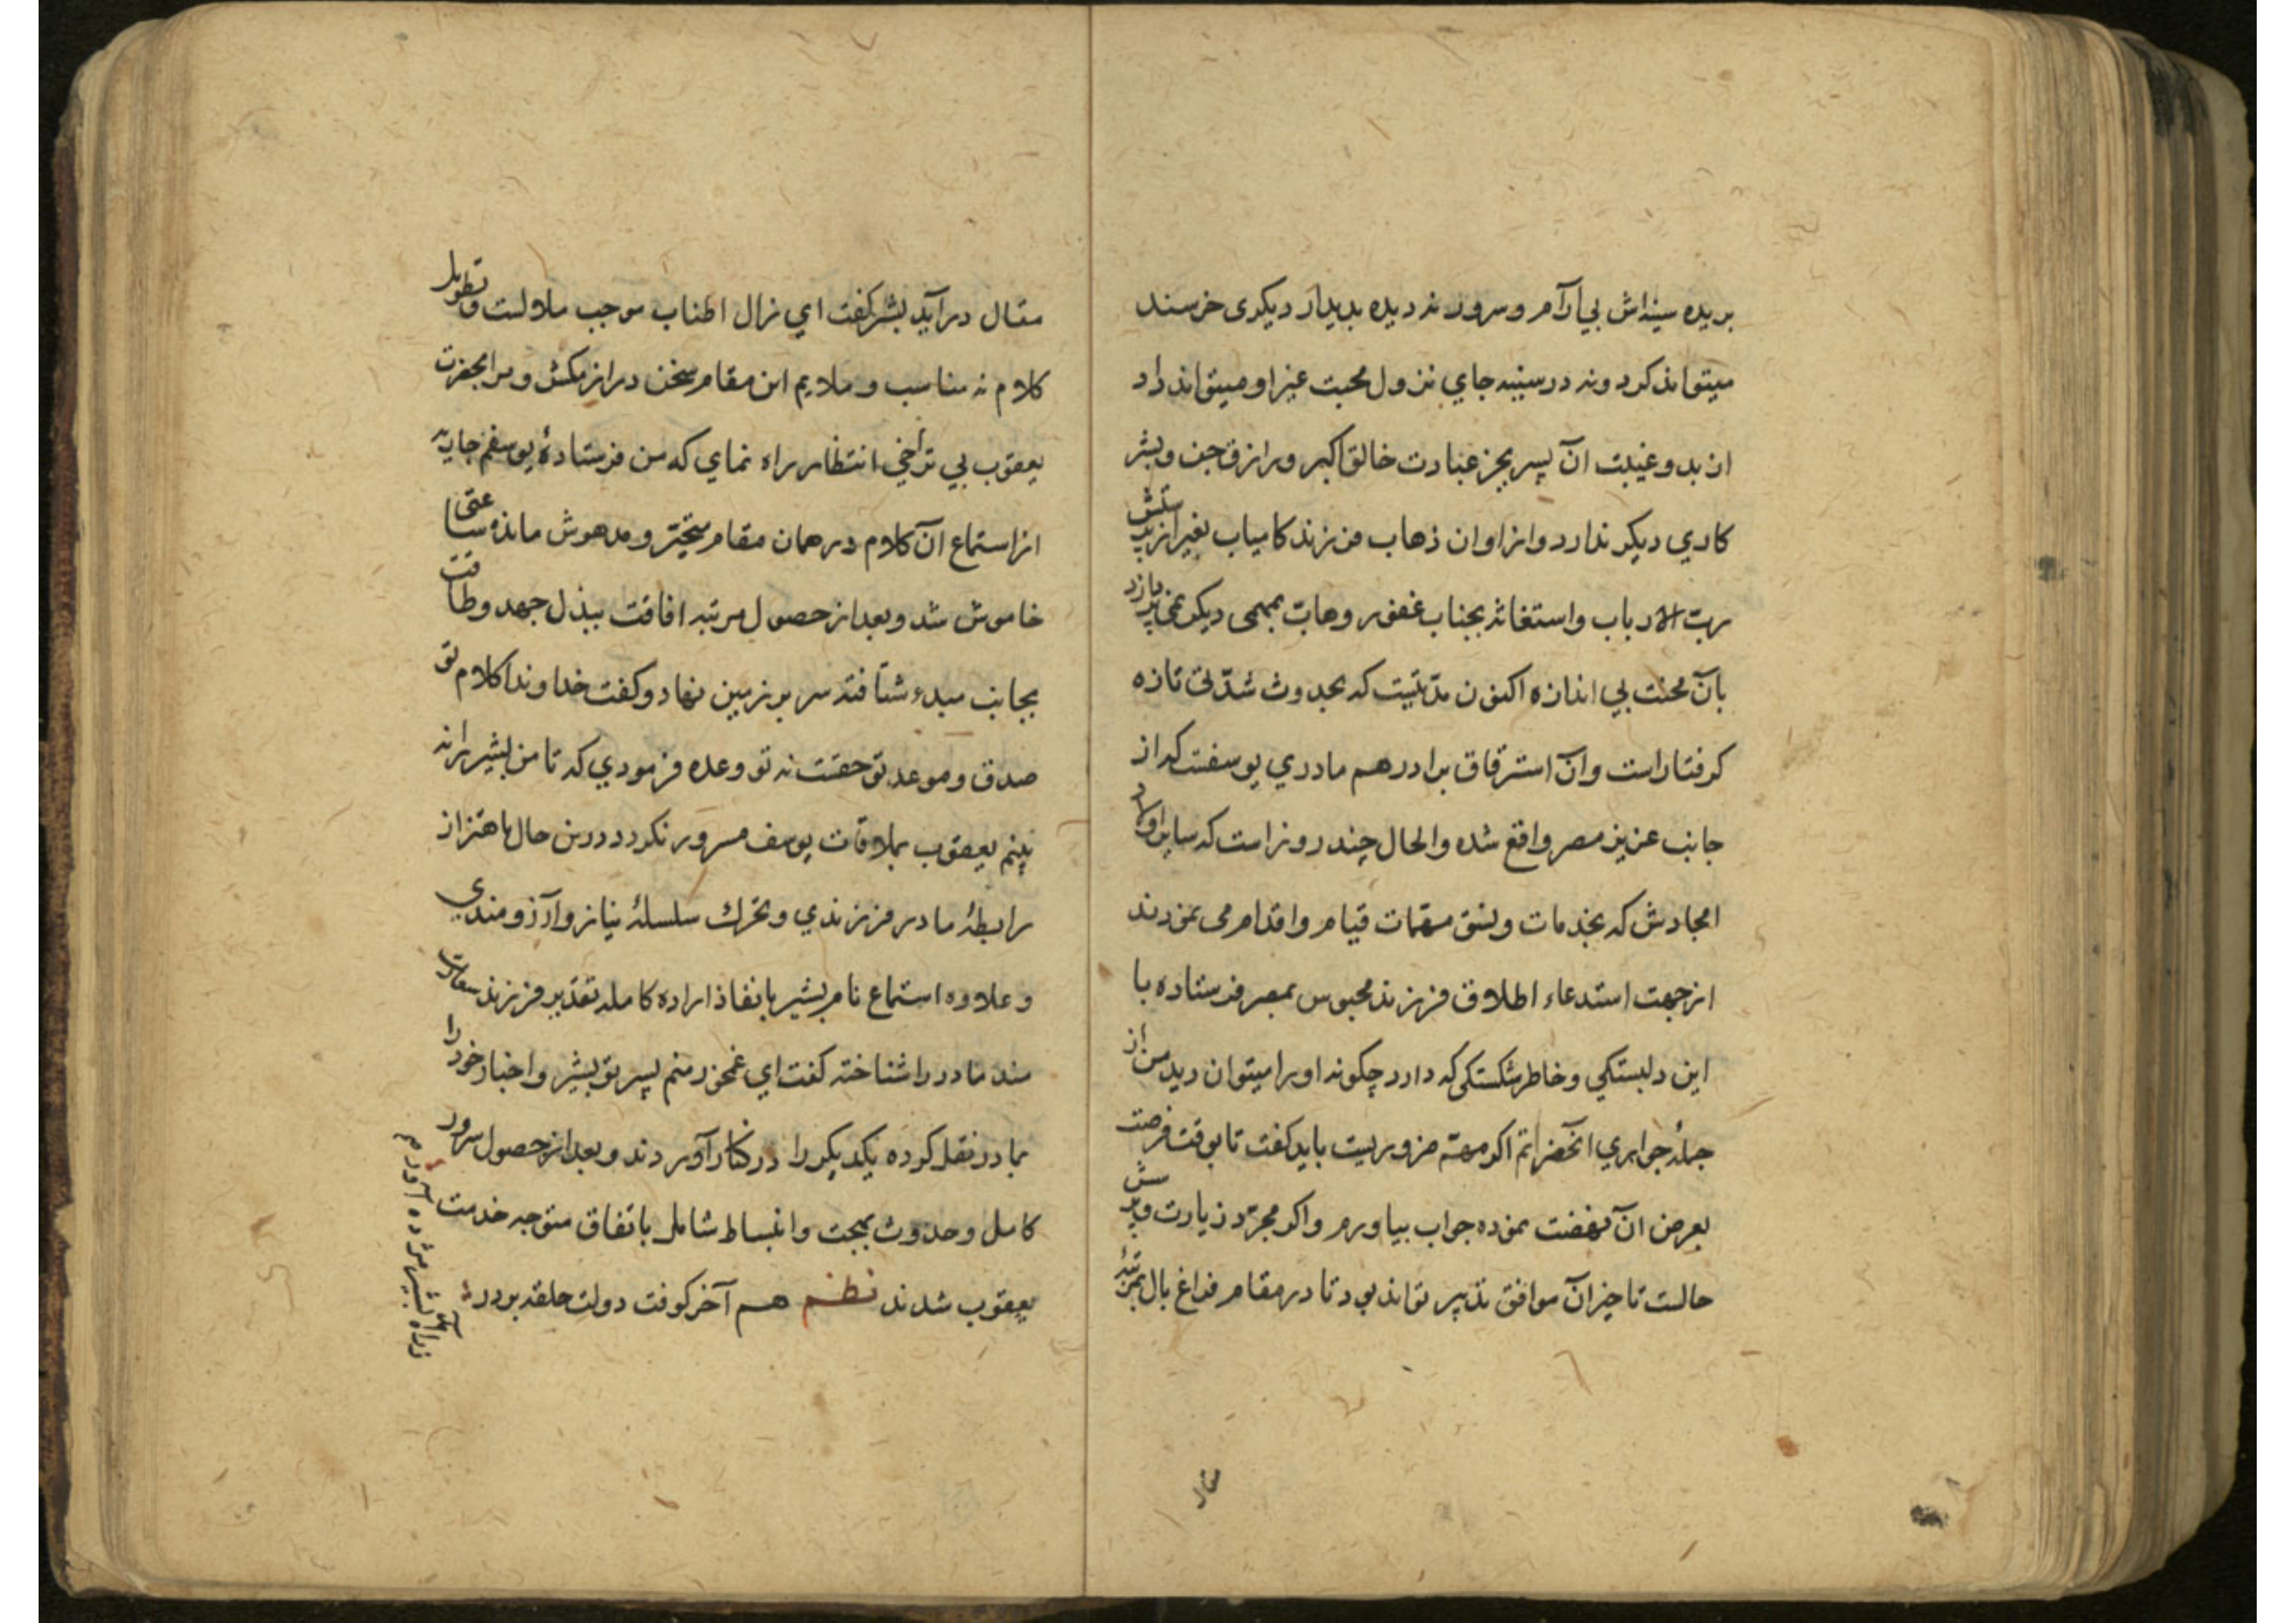 بریده سینه‌اش بی آرام و سرور نه دیده بدیدار دیکری خرسند
میتواند کرد و نه در سینه جای نزول محبت غیر او میتواند داد
از بدو غیبت آن پسر بجز عبادت خالق اکبر و رازق جن و بشر
کاری دیکر ندارد و از اوان ذهاب فرزند کامیاب بغیر از پرستش
رب الارباب و استغاثه بجناب غفور وهاب بمهمی دیکر نمی پردازد
با آن محنت بی اندازه اکنون مدتیست که بحدوث شدتی تازه
کرفتار است و آن استرقاق برادر هم مادری یوسفست که از
جانب عزیز مصر واقع شده و الحال چند روز است که سایر اولاد
امجادش که بخدمات و نسق مهمات قیام و اقدام می نمودند
از جهت استدعاء اطلاق فرزند محبوس بمصر فرستاده با
این دلبستکی و خاطر شکستکی که دارد چکونه او را میتوان دید من از
جملهٔ جواری آنحضرتم اکر مهم ضروریست باید کفت تا بوقت فرصت
بعرض آن نهضت نموده جواب بیاورم و اکر مجرد زیارت و پرسش
حالست تاخیر آن موافق تدبیر تواند بود تا در مقام فراغ بال بمرتبهٔ
مقال
مقال درآید بشیر کفت ای زال اطناب موجب ملالت و تطویل
کلام نه مناسب و ملایم این مقام سخن دراز مکش و مرا بحضرت
یعقوب بی تراخی انتظار راه نمای که من فرستادهٔ یوسفم جاریه
از استماع آن کلام در همان مقام متحیر و مدهوش مانده ساعتی
خاموش شد و بعد از حصول مرتبه افاقت ببذل جهد و طاقت
بجانب مبدء شتافته سر بر زمین نهاد و کفت خداوندا کلام تو
صدق و موعد تو حقست نه تو وعده فرمودی که تا من بشیر را نه
بینم یعقوب بملاقات یوسف مسرور نکردد درین حال باهتزاز
رابطهٔ مادر فرزندی و تحرك سلسلهٔ نیاز و آرزومندی
و علاوه استماع نام بشیر بانفاذ اراده کامله تقدیر فرزند سعادت
مند مادر را شناخته کفت ای غمخور منم پسر تو بشیر و اخبار خود را
بمادر نقل کرده یکدیکر را در کنار آوردند و بعد از حصول سرور
کامل و حدوث بهجت و انبساط شامل باتفاق متوجه خدمت
یعقوب شدند نظم هم آخر کوفت دولت حلقه بر در
ز راه آمد بشیر مژده آور م